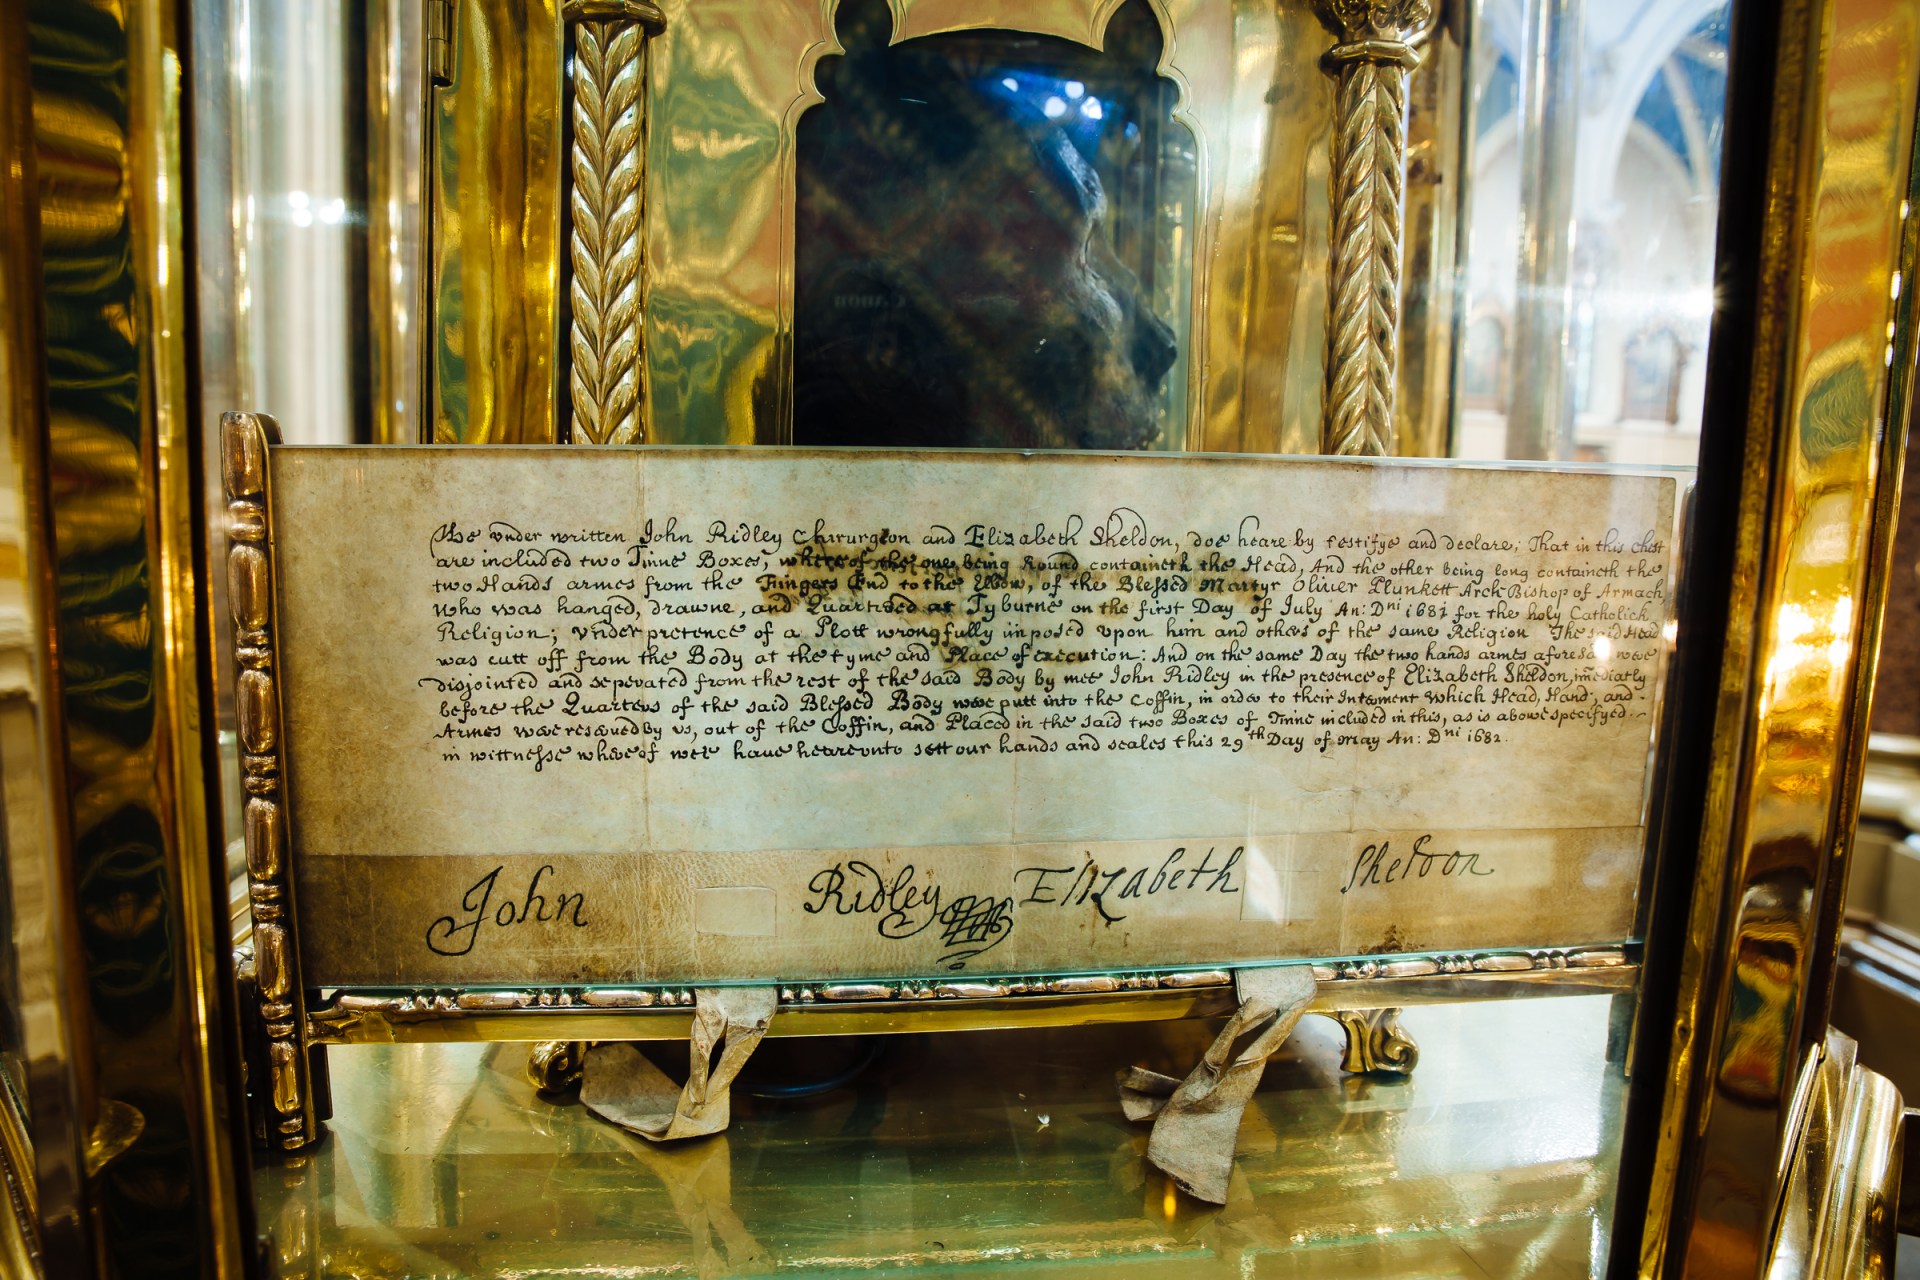 We vnder written John Ridley Chirurgeon and Elizabeth Sheldon, doe heare by testifye and declare; That in this Chest
are included two Tinne Boxes, whereof the one being Round containeth the Head, And the other being long containeth the
two Hands armes from the Fingers End to the Elbow, of the Blessed Martyr Oliver Plunkett Arch Bishop of Armach,
Who was hanged, drawne, and Quartered at Tyburne on the first Day of July An: Dni 1681 for the holy Catholick
Religion; vnder pretence of a Plott wrongfully imposed vpon him and others of the same Religion The said Head
was cutt off from the Body at the tyme and Place of execution: And on the same Day the two hands armes aforesaid were
disjointed and seperated from the rest of the said Body by mee John Ridley in the presence of Elizabeth Sheldon, immediatly
before the Quarters of the said Blessed Body were putt into the Coffin, in order to their Interment Which Head, Hand, and
Armes were rescued by vs, out of the Coffin, and Placed in the said two Boxes of Tinne included in this, as is above specifyed.
in wittnesse whereof wee have heareunto sett our hands and seales this 29th Day of May An: Dni 1682.
John Ridley Elizabeth Sheldon